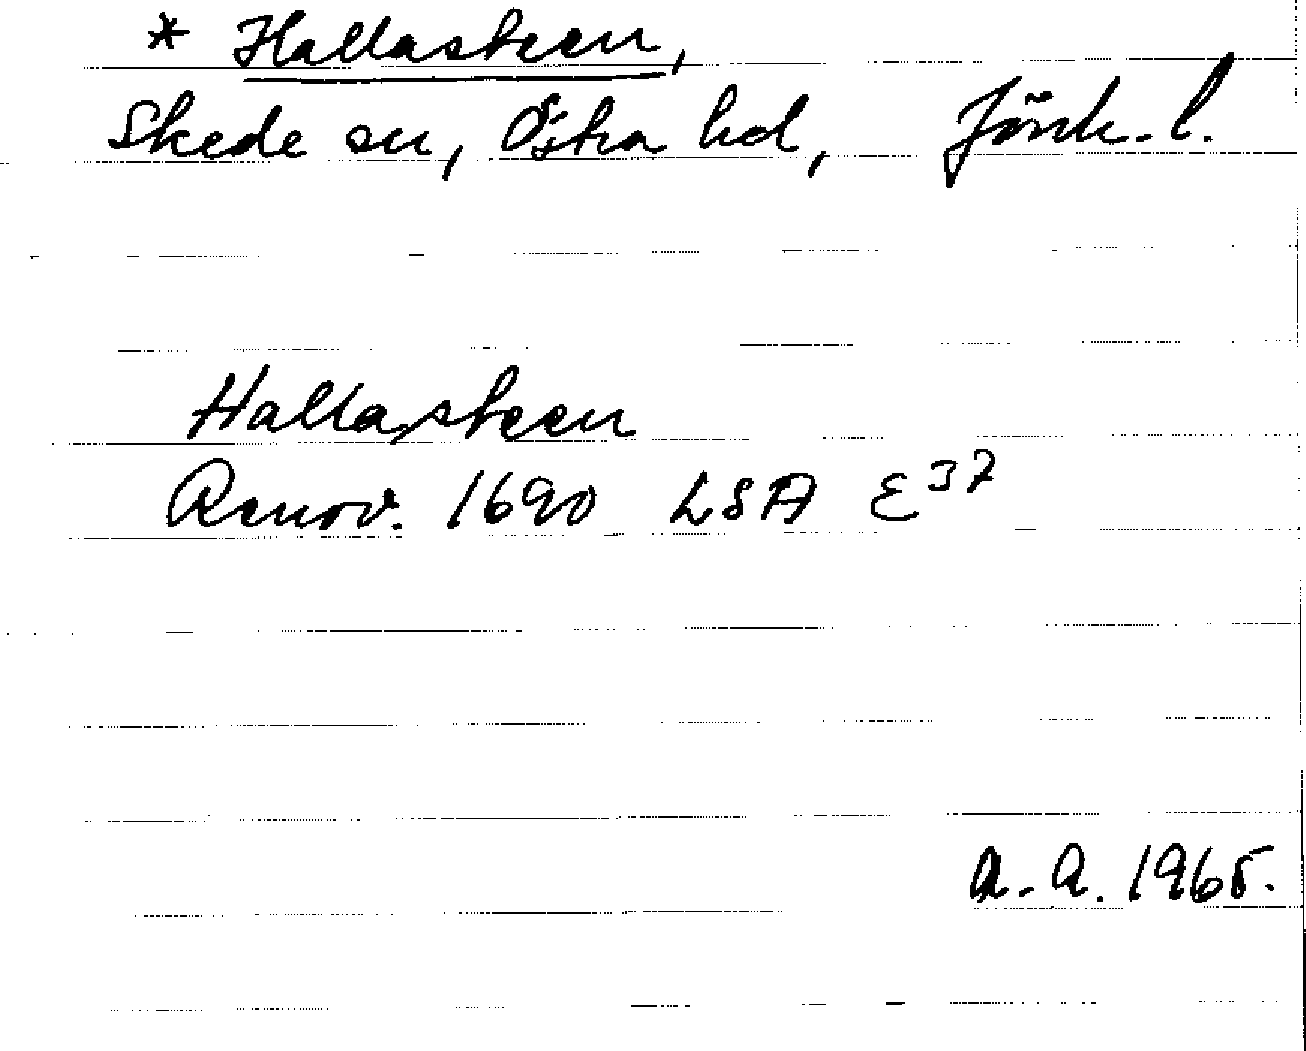 * Hallasteen,
Skede sn, Östra hd, Jönk. l.
Hallasteen
Renov. 1690 LSA E 37
A.A. 1965.